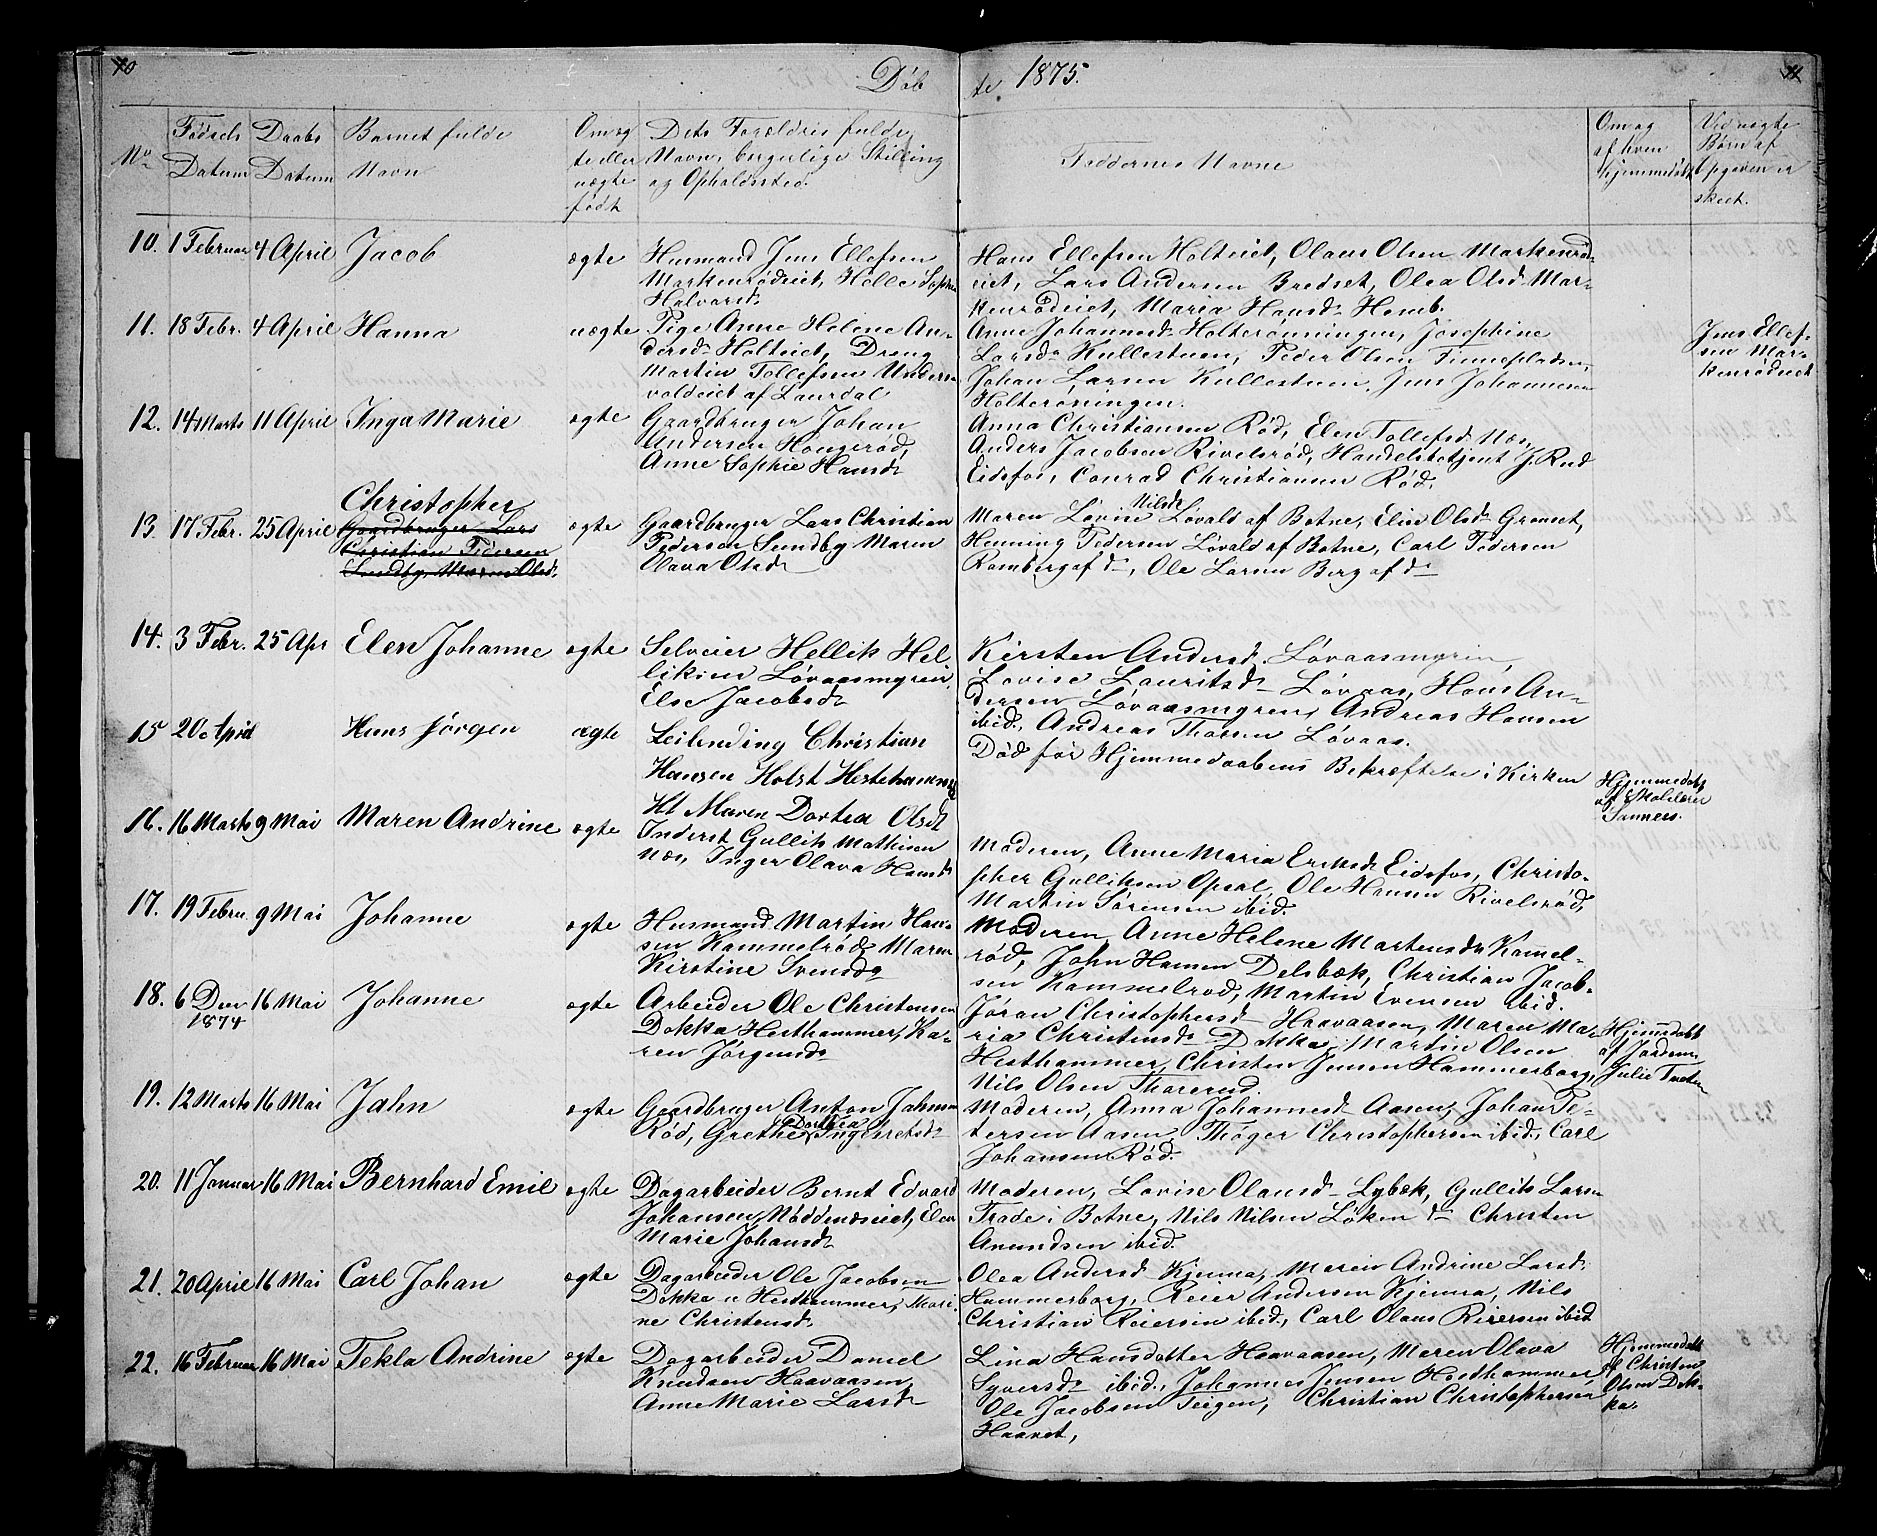 10
Døb
te. 1875.
11
No
Fødsels Datum
Daabs Datum
Barnet fulde Navn
Om æg
te eller
uægte
født
Dets Forældres fulde
Navn, borgerlige Stilling
og Opholdssted.
Faddernes Navne
Om og
af hvem
hjemmedøbt
Ved uægte
Børn af
Opgaven er
skeet.
10. 1 Februar 4 April Jacob ægte
Husmand Jens Ellefsen
Markenrødeiet, Helle Sophie
Halvorsd
Hans Ellefsen Holteiet, Olaus Olsen Markenrød-
eiet, Lars Andersen Bredset, Olea Olsd. Mar-
kenrødeiet, Maria Hansd Hemb.
11. 18 Febr. 4 April Hanna uægte
Pige Anne Helene An-
dersd Holteiet, Dreng
Martin Tollefsen Unders
voldeiet af Laurdal
Anne Johannesd Holterønningen, Josephine
Larsd Kullestuen, Peder Olsen Finnepladsen,
Johan Larsen Kullestuen, Jens Johannesen
Holterøningen.
Jens Ellef-
sen Mar-
kenrødeiet
12. 14 Marts 11 April Inga Marie ægte
Gaardbruger Johan
Andersen Hougerød,
Anne Sophie Hansd
Anna Christiansen Rød, Elen Tollefsd Næs,
Anders Jacobsen Rivelsrød, Handelsbetjent J. Rud
Eidsfos, Conrad Christiansen Rød.
13. 17 Febr. 25 April Christopher
Gaardbruger Lars
Christian Pedersen
Sundby, Maren Olsd.
ægte
Gaardbruger Lars Christian
Pedersen Sundby Maren
Olava Olsd
Maren Lovise Nilsd Løvald af Botne, Elise Olsd Grønset,
Henning Pedersen Løvald af Botne, Carl Pedersen
Ramberg af do, Ole Larsen Berg af do
14. 3 Febr. 25 Apr Elen Johanne ægte
Selveier Hellik Hel
liksen Løvaasmyren,
Else Jacobsd
Kirsten Andersd. Løvaasmyren,
Lovise Lauritsd Løvaas, Hans An-
dersen Løvaasmyren, Andreas Hansen
ibid., Andreas Thorsen Løvaas.
15 20 April Hans Jørgen ægte
Leilending Christian
Hansen Holst Hestehammer
Kt Maren Dortea Olsd
Død før Hjemmedaabens Bekræftelse i Kirken
Hjemmedøbt
af Skolelærer
Sannes.
16. 16 Marts 9 Mai Maren Andrine ægte
Inderst Gullik Mathisen
Næs, Inger Olava Hansd
Moderen, Anne Maria Eriksd Eidsfos, Christo-
pher Gulliksen Opsal, Ole Hansen Rivelsrød,
Martin Sørensen ibid.
17. 19 Febru. 9 Mai Johanne ægte
Husmand Martin Han-
sen Kammelrød, Maren
Kirstine Svendsd
Moderen, Anne Helene Martensd Kamel-
rød, John Hansen Delsbæk, Christian Jacob-
sen Kammelrød, Martin Evensen ibid.
18. 6 Decr 1874 16 Mai Johanne ægte
Arbeider Ole Christensen
Dokka Hesthammer, Ka-
ren Jørgensd
Jøran Christophersd Haavaasen, Maren Ma-
ria Christensd Dokka, Martin Olsen
Hesthammer, Christen Jensen Hammerborg,
Nils Olsen Thorerud.
Hjemdøbt
af Jordem.
Julie
19. 12 Marts 16 Mai Jahn ægte
Gaardbruger Anton Johnsen
Rød, Grethe Dorthea Ingebretsd
Moderen, Anna Johannesd Aasen, Johan Pe-
tersen Aasen, Thøger Christophersen ibid., Carl
Johansen Rød.
20. 11 Januar 16 Mai Bernhard Emil ægte
Dagarbeider Bernt Edvard
Johansen Nøddenæseiet, Elen
Marie Johansd
Moderen, Lovise Olausd Lybæk, Gullik Larsen
Trade i Botne, Nils Nilsen Løken do Christen
Amundsen ibid.
21. 20 April 16 Mai Carl Johan ægte
Dagarbeider Ole Jacobsen
Dokka u Hesthammer, Mari-
ne Christensd
Olea Andersd Kjenna, Maren Andrine Larsd
Hammerborg, Reier Andersen Kjenna, Nils
Christian Reiersen ibid., Carl Olaus Reiersen ibid
22. 16 Februar 16 Mai Tekla Andrine ægte
Dagarbeider Daniel
Knudsen Haavaasen,
Anne Marie Larsd
Lina Hansdatter Haavaasen, Maren Olava
Syversd ibid., Johannes Jensen Hesthammer
Ole Jacobsen Teigen, Christian Christophersen
Haavet,
Hjemmedøbt
af Christen
Olsen Dok-
ka.